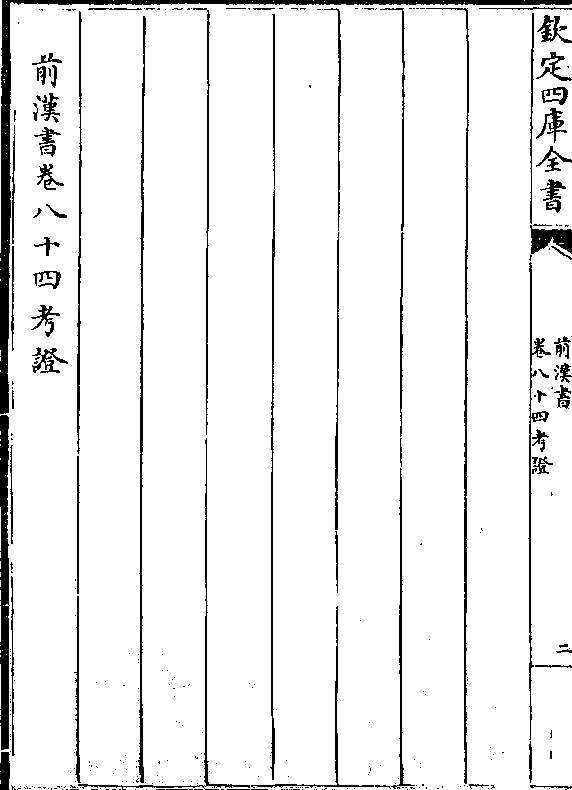 欽定四庫全書
前漢書
卷八十四考證
二
前漢書卷八十四考證